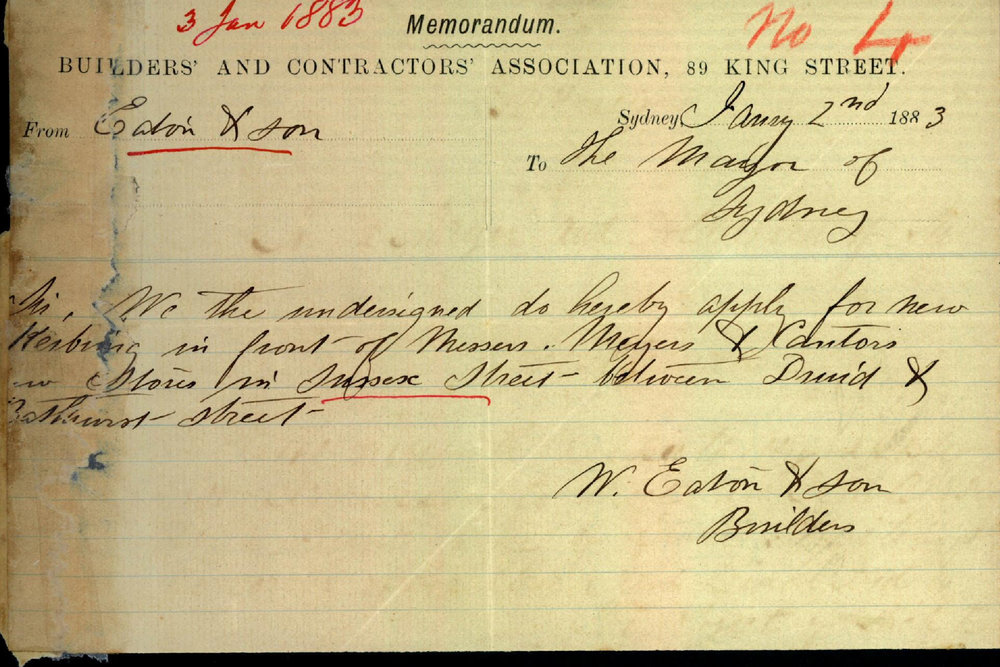 3 Jan 1883
Memorandum.
No 4
BUILDERS' AND CONTRACTORS' ASSOCIATION, 89 KING STREET.
From Eaton & Son
Sydney Janry 2nd 1883
To The Mayor of
Sydney
Sir, We the undersigned do hereby apply for new
Kerbing in front of Messrs. Meyers & Cantors
Stores in Sussex Street between Druid &
Bathurst Street
W. Eaton & Son
Builders